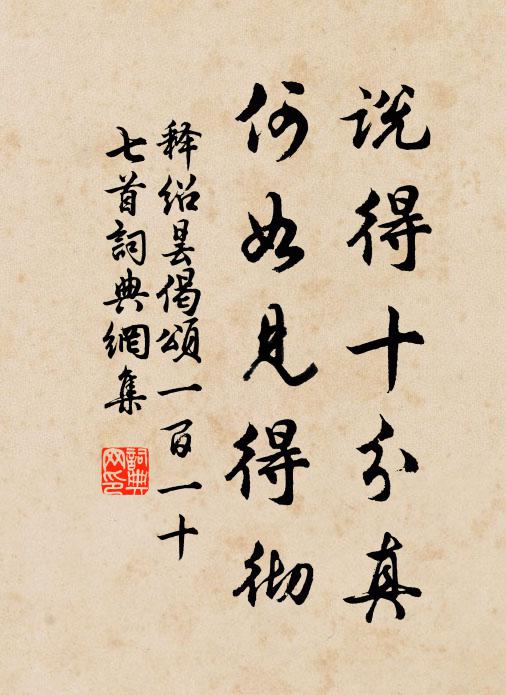 说得十分真
何如见得彻
释绍昙偈頌一百一十
七首詞典網集
詞典
网印